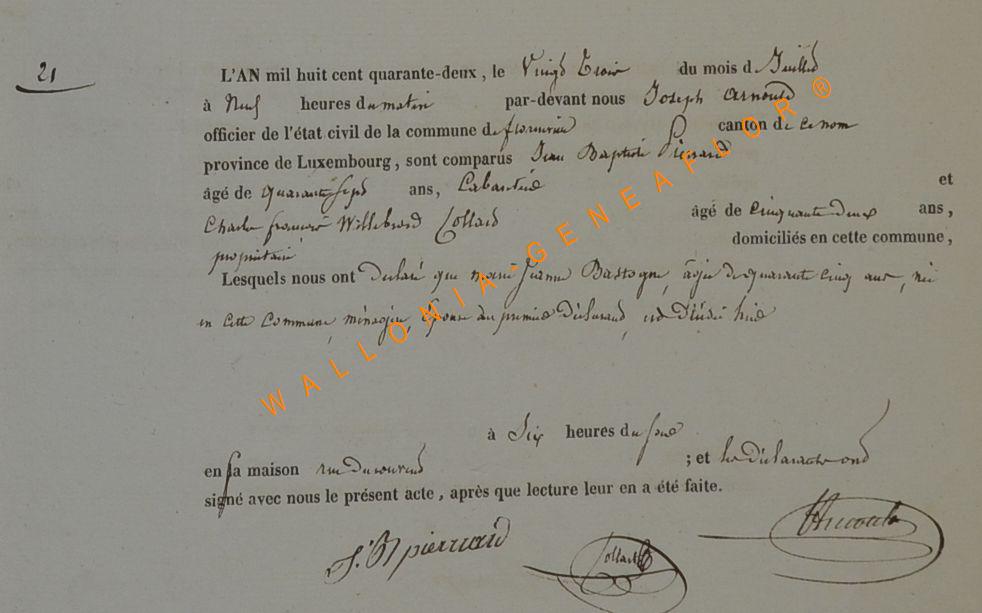 21
L'AN mil huit cent quarante-deux, le Vingt Trois du mois d. Juillet
à Neuf heures du matin par-devant nous Joseph Arnould
officier de l'état civil de la commune de florenville canton de ce nom
province de Luxembourg, sont comparus Jean Baptiste Pierrard
âgé de quarante sept ans, Cabaretié et
Charles françois Willebrord Collard âgé de cinquante deux ans,
propriétaire domiciliés en cette commune,
Lesquels nous ont déclaré que Marie Jeanne Bastogne, agée de quarante cinq ans, née
en cette Commune, ménagère, Epouse du premier déclarant, est décédée hier
à Six heures du soir
en sa maison rue du ; et les déclarants ont
signé avec nous le présent acte, après que lecture leur en a été faite.
J. B pierrard Collard
WALLONIA-GENEAFLOR ®